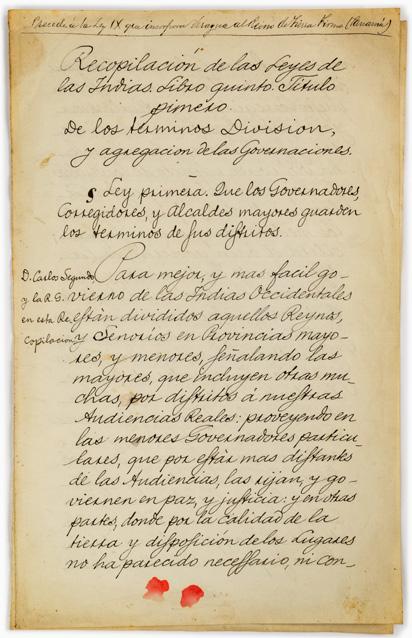 Precede a la Ley IX que incorpora Veragua al Reino de Tierra Firme (Panamá)
Recopilación de las Leyes de
las Indias. Libro quinto. Título
pimero.
De los terminos Division,
y agregacion de las Governaciones.
§ Ley primera. Que los Governadores,
Corregidores, y Alcaldes mayores guarden
los terminos de sus distritos.
D. Carlos Segundo
y la R. G.
en esta Re
copilacion
Para mejor, y mas facil go-
vierno de las Indias Occidentales
están divididos aquellos Reynos,
y Senorios en Provincias mayo-
res, y menores, señalando las
mayores, que incluyen otras mu-
chas, por distritos á nuestras
Audiencias Reales: proveyendo en
las menores Governadores particu-
lares, que por estàr mas distantes
de las Audiencias, las rijan, y go-
viernen en paz, y justicia: y en otras
partes, donde por la calidad de la
tierra y disposición de los Lugares
no ha parecido necessario, ni con-